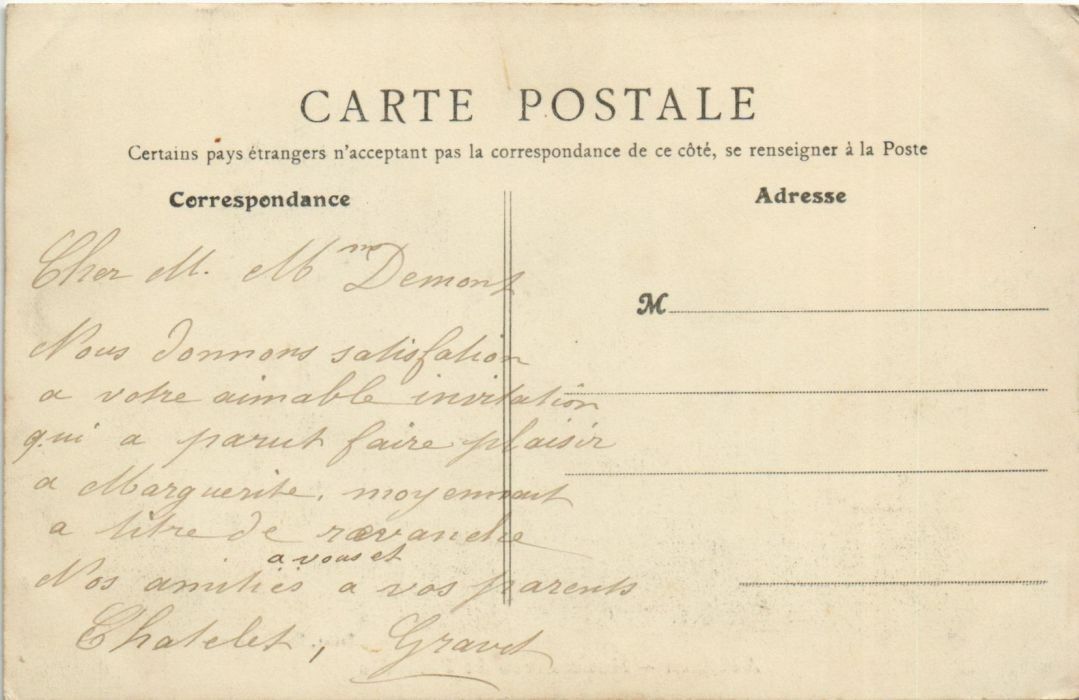 CARTE POSTALE
Certains pays étrangers n'acceptant pas la correspondance de ce côté, se renseigner à la Poste
Correspondance
Cher M. Mme Demont
Nous donnons satisfation
a votre aimable invitation
qui a parut faire plaisir
a Marguerite, moyennant
a titre de revanche
a vous et
Nos amitiés a vos parents
Chatelet, Gravet
Adresse
M